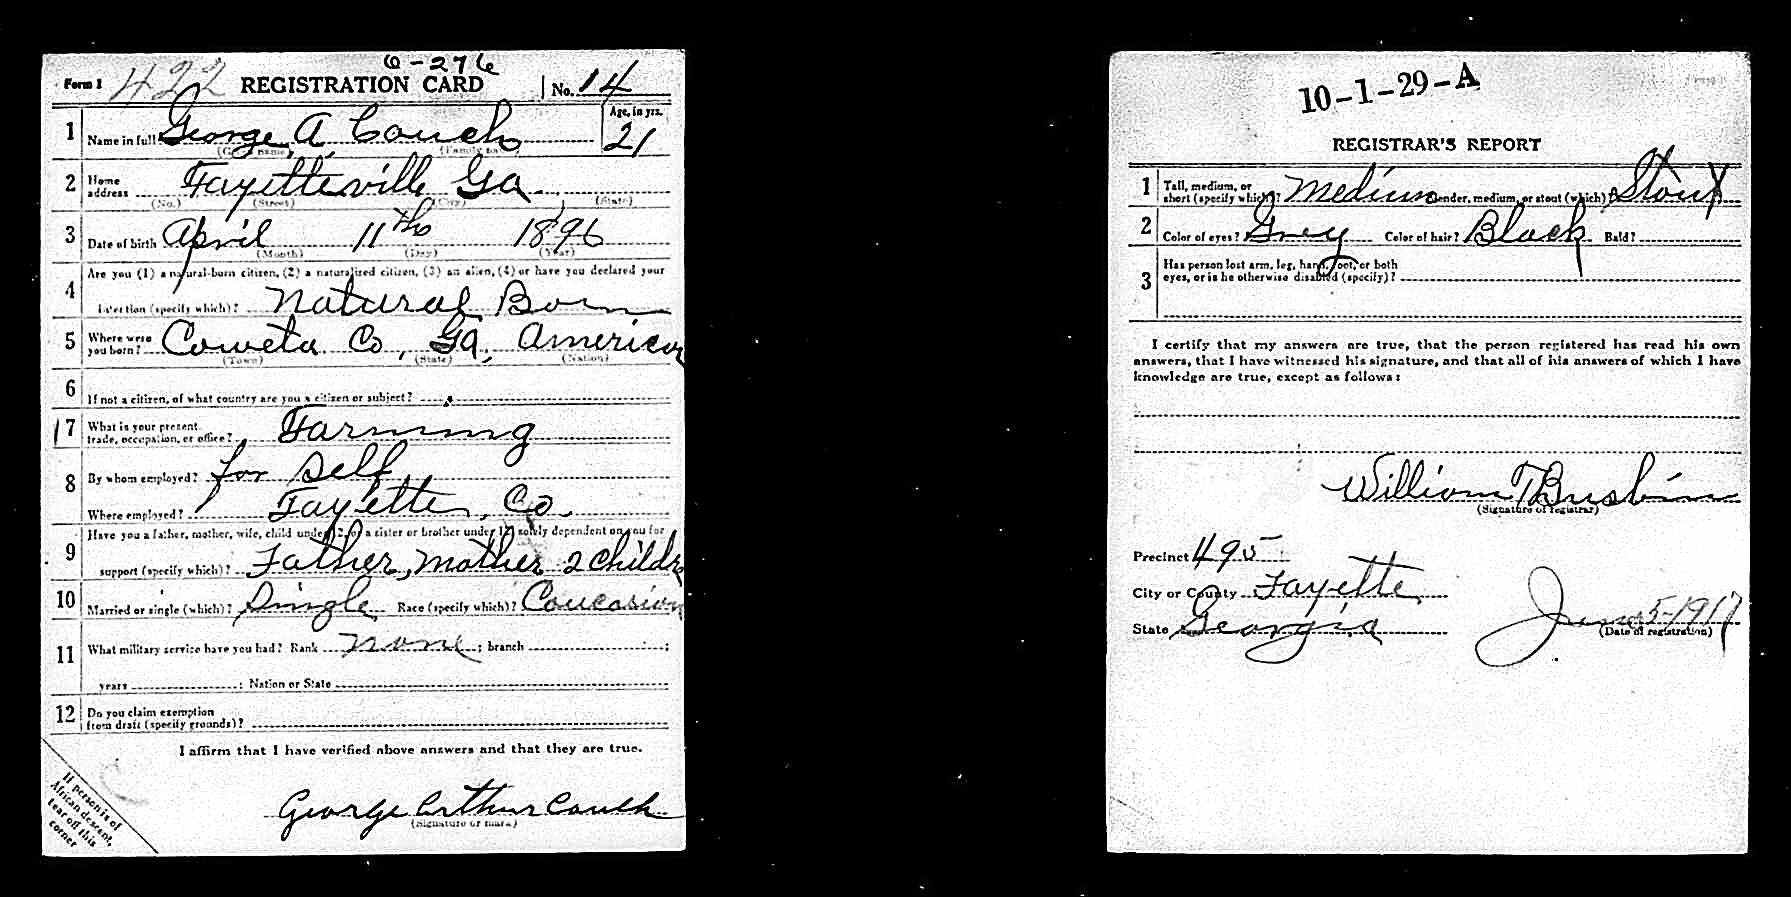 6-276
Form 1 422 REGISTRATION CARD No. 14
1 Name in full George A. Couch Age, in yrs. 21
(Given name) (Family name)
2 Home address Fayetteville Ga.
(No.) (Street) (City) (State)
3 Date of birth April 11th 1896
(Month) (Day) (Year)
Are you (1) a natural-born citizen, (2) a naturalized citizen, (3) an alien, (4) or have you declared your
4 intention (specify which)? Natural Born
5 Where were you born? Coweta Co, Ga, American
(Town) (State) (Nation)
6 If not a citizen, of what country are you a citizen or subject?
17 What is your present trade, occupation, or office? Farming
8 By whom employed? for self
Where employed? Fayette, Co.
9 Have you a father, mother, wife, child under 12, or a sister or brother under 12, solely dependent on you for
support (specify which)? Father, mother 2 childr
10 Married or single (which)? Single Race (specify which)? Coucasion
11 What military service have you had? Rank none ; branch ;
years ; Nation or State
12 Do you claim exemption from draft (specify grounds)?
I affirm that I have verified above answers and that they are true.
George Arthur Couch
(Signature or mark)
If person is of
African descent,
tear off this
corner
10-1-29-A
REGISTRAR'S REPORT
1 Tall, medium, or short (specify which)? Medium Slender, medium, or stout (which)? Stout
2 Color of eyes? Grey Color of hair? Black Bald?
3 Has person lost arm, leg, hand, foot, or both
eyes, or is he otherwise disabled (specify)?
I certify that my answers are true, that the person registered has read his own
answers, that I have witnessed his signature, and that all of his answers of which I have
knowledge are true, except as follows:
William T Busbin
(Signature of registrar)
Precinct 495
City or County Fayette
State Georgia June 5-1917
(Date of registration)